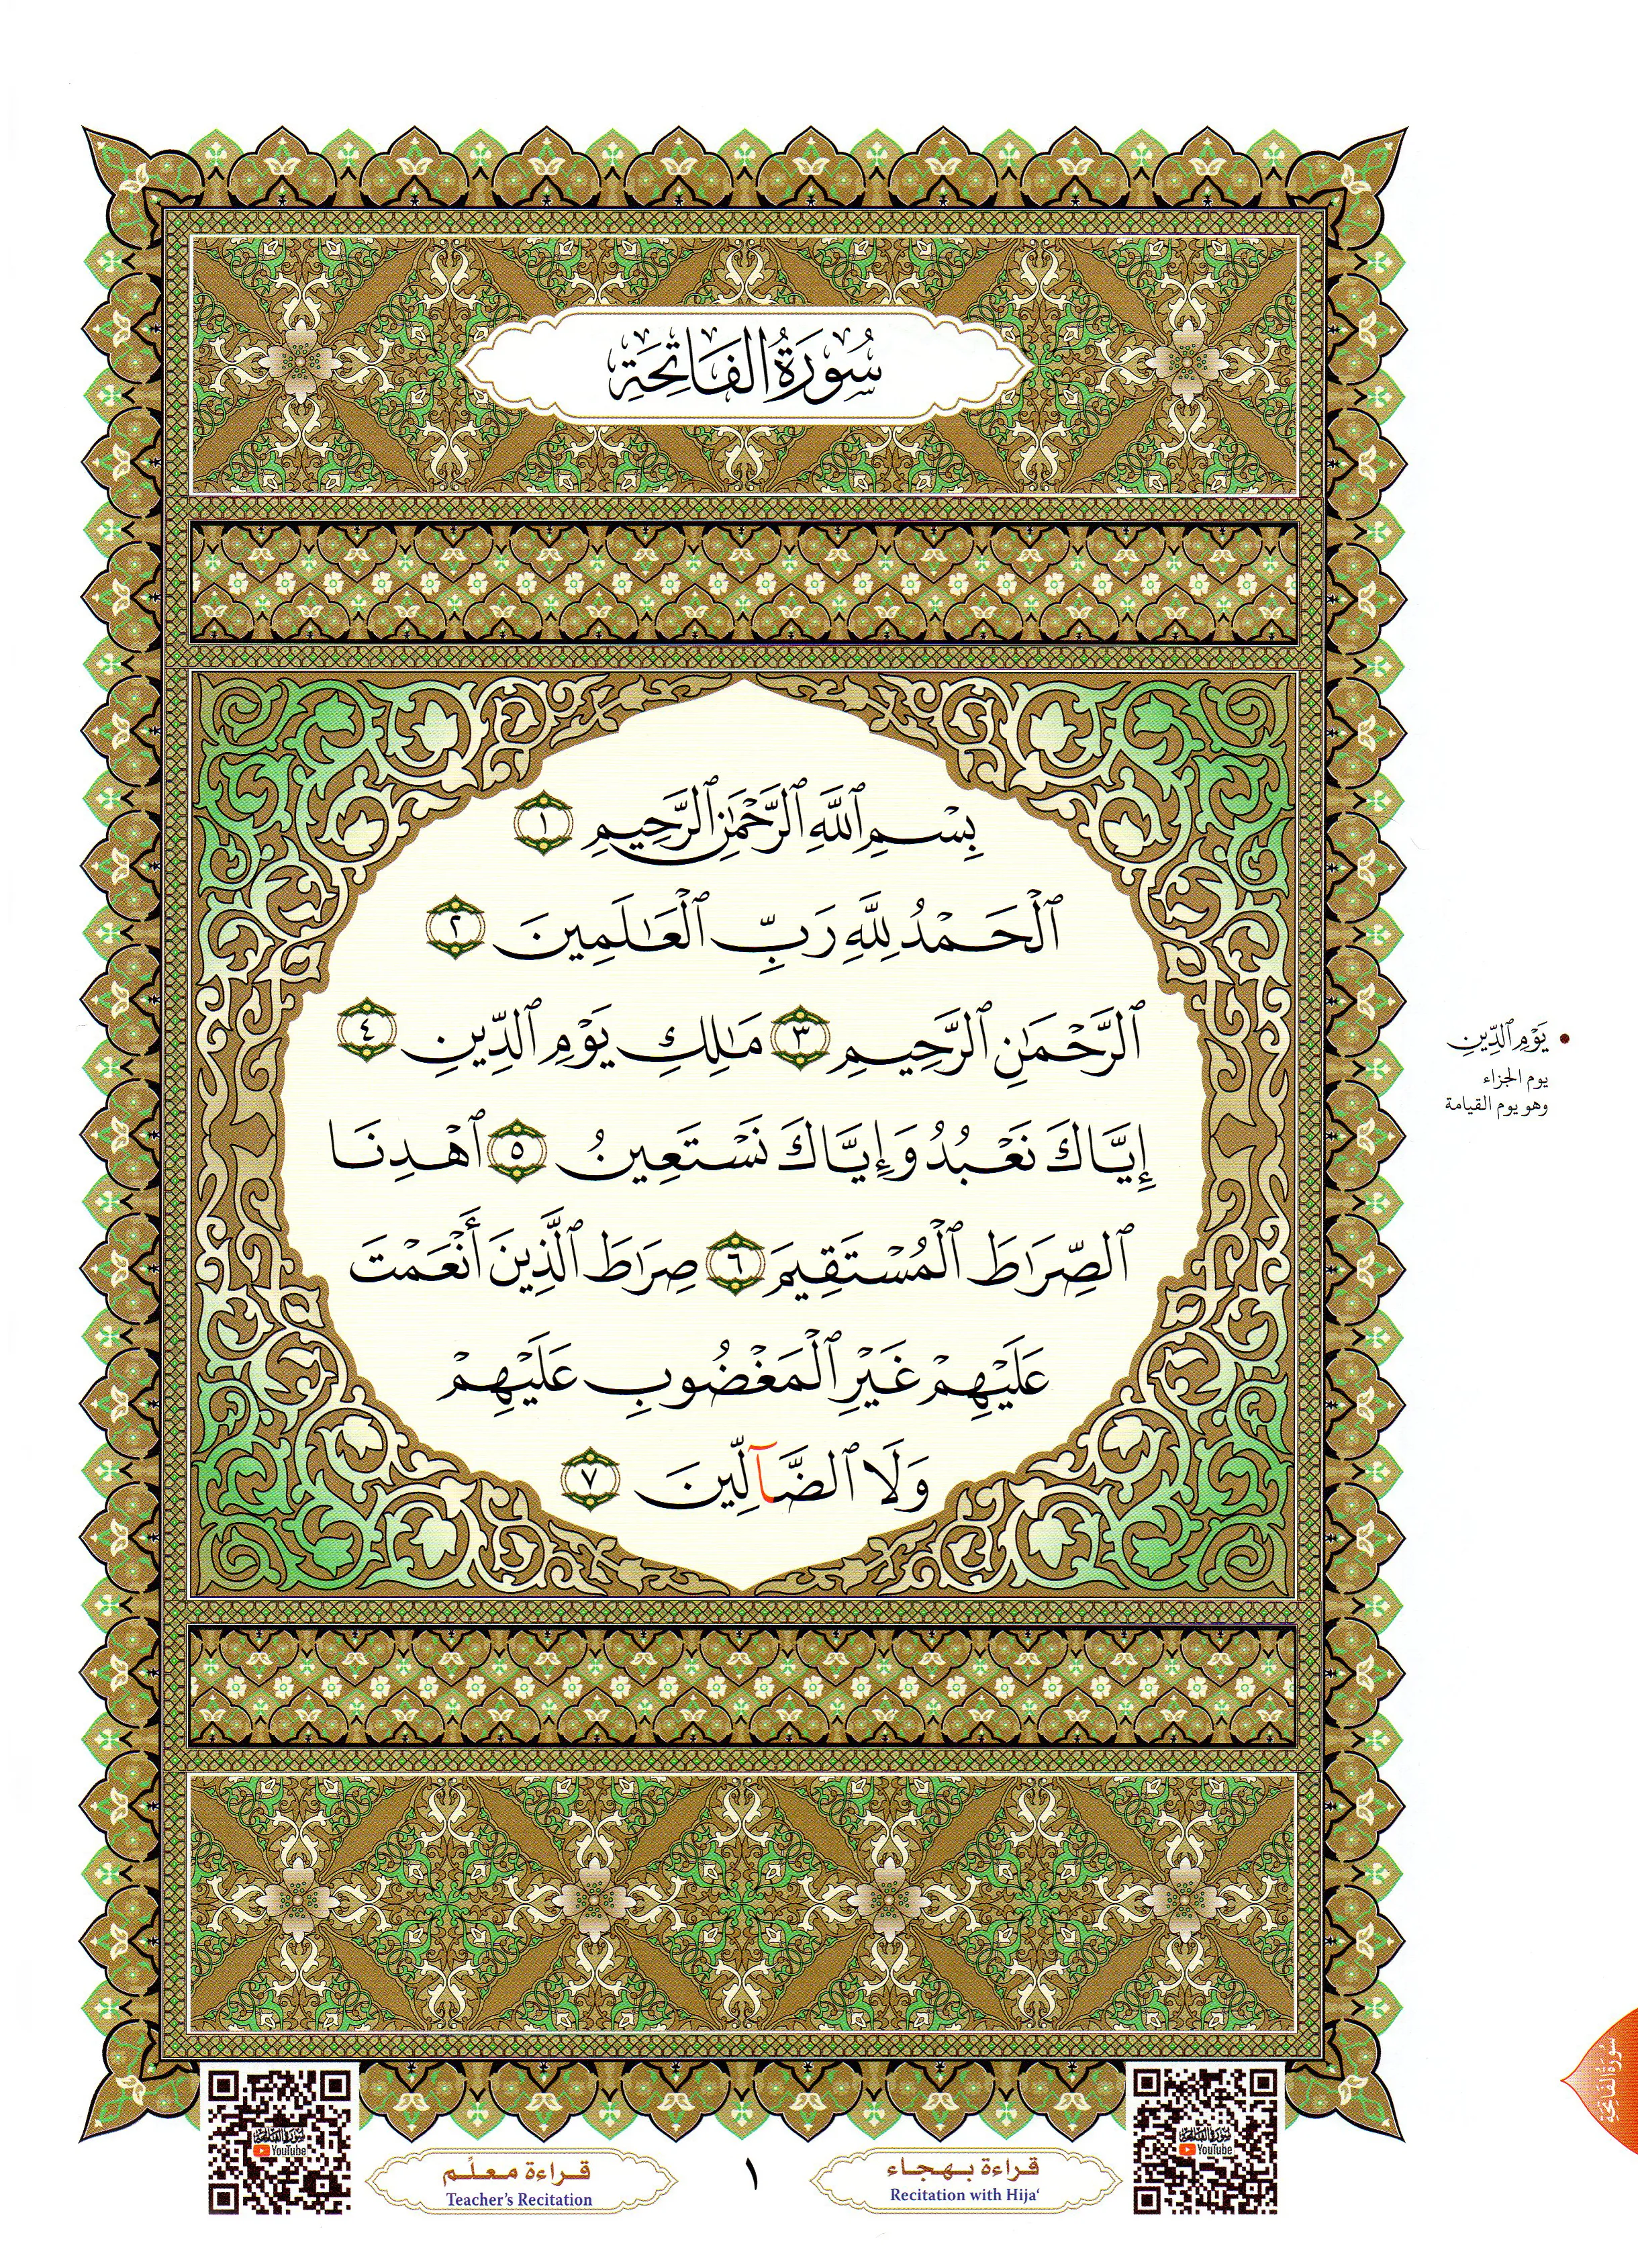 سُورَةُ الفَاتِحَةِ
بِسْمِ ٱللَّهِ ٱلرَّحْمَٰنِ ٱلرَّحِيمِ ١
ٱلْحَمْدُ لِلَّهِ رَبِّ ٱلْعَٰلَمِينَ ٢
ٱلرَّحْمَٰنِ ٱلرَّحِيمِ ٣ مَٰلِكِ يَوْمِ ٱلدِّينِ ٤
إِيَّاكَ نَعْبُدُ وَإِيَّاكَ نَسْتَعِينُ ٥ ٱهْدِنَا
ٱلصِّرَٰطَ ٱلْمُسْتَقِيمَ ٦ صِرَٰطَ ٱلَّذِينَ أَنْعَمْتَ
عَلَيْهِمْ غَيْرِ ٱلْمَغْضُوبِ عَلَيْهِمْ
وَلَا ٱلضَّآلِّينَ ٧
يَوْمِ ٱلدِّينِ
يوم الجزاء
وهو يوم القيامة
سُورَةُ الفَاتِحَةِ
سورة الفاتحة
YouTube
قراءة بهجاء
Recitation with Hija‘
١
قراءة معلّم
Teacher's Recitation
سورة الفاتحة
YouTube